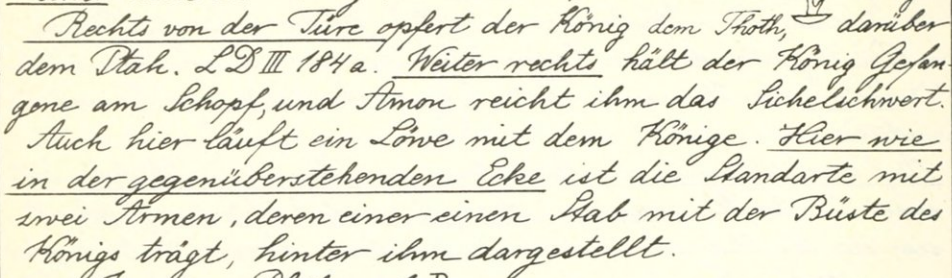 Rechts von der Türe opfert der König dem Thoth, darüber
dem Ptah. LD III 184a. Weiter rechts hält der König Gefan-
gene am Schopf, und Amon reicht ihm das Sichelschwert.
Auch hier läuft ein Löwe mit dem Könige. Hier wie
in der gegenüberstehenden Ecke ist die Standarte mit
zwei Armen, deren einer einen Stab mit der Büste des
Königs trägt, hinter ihm dargestellt.